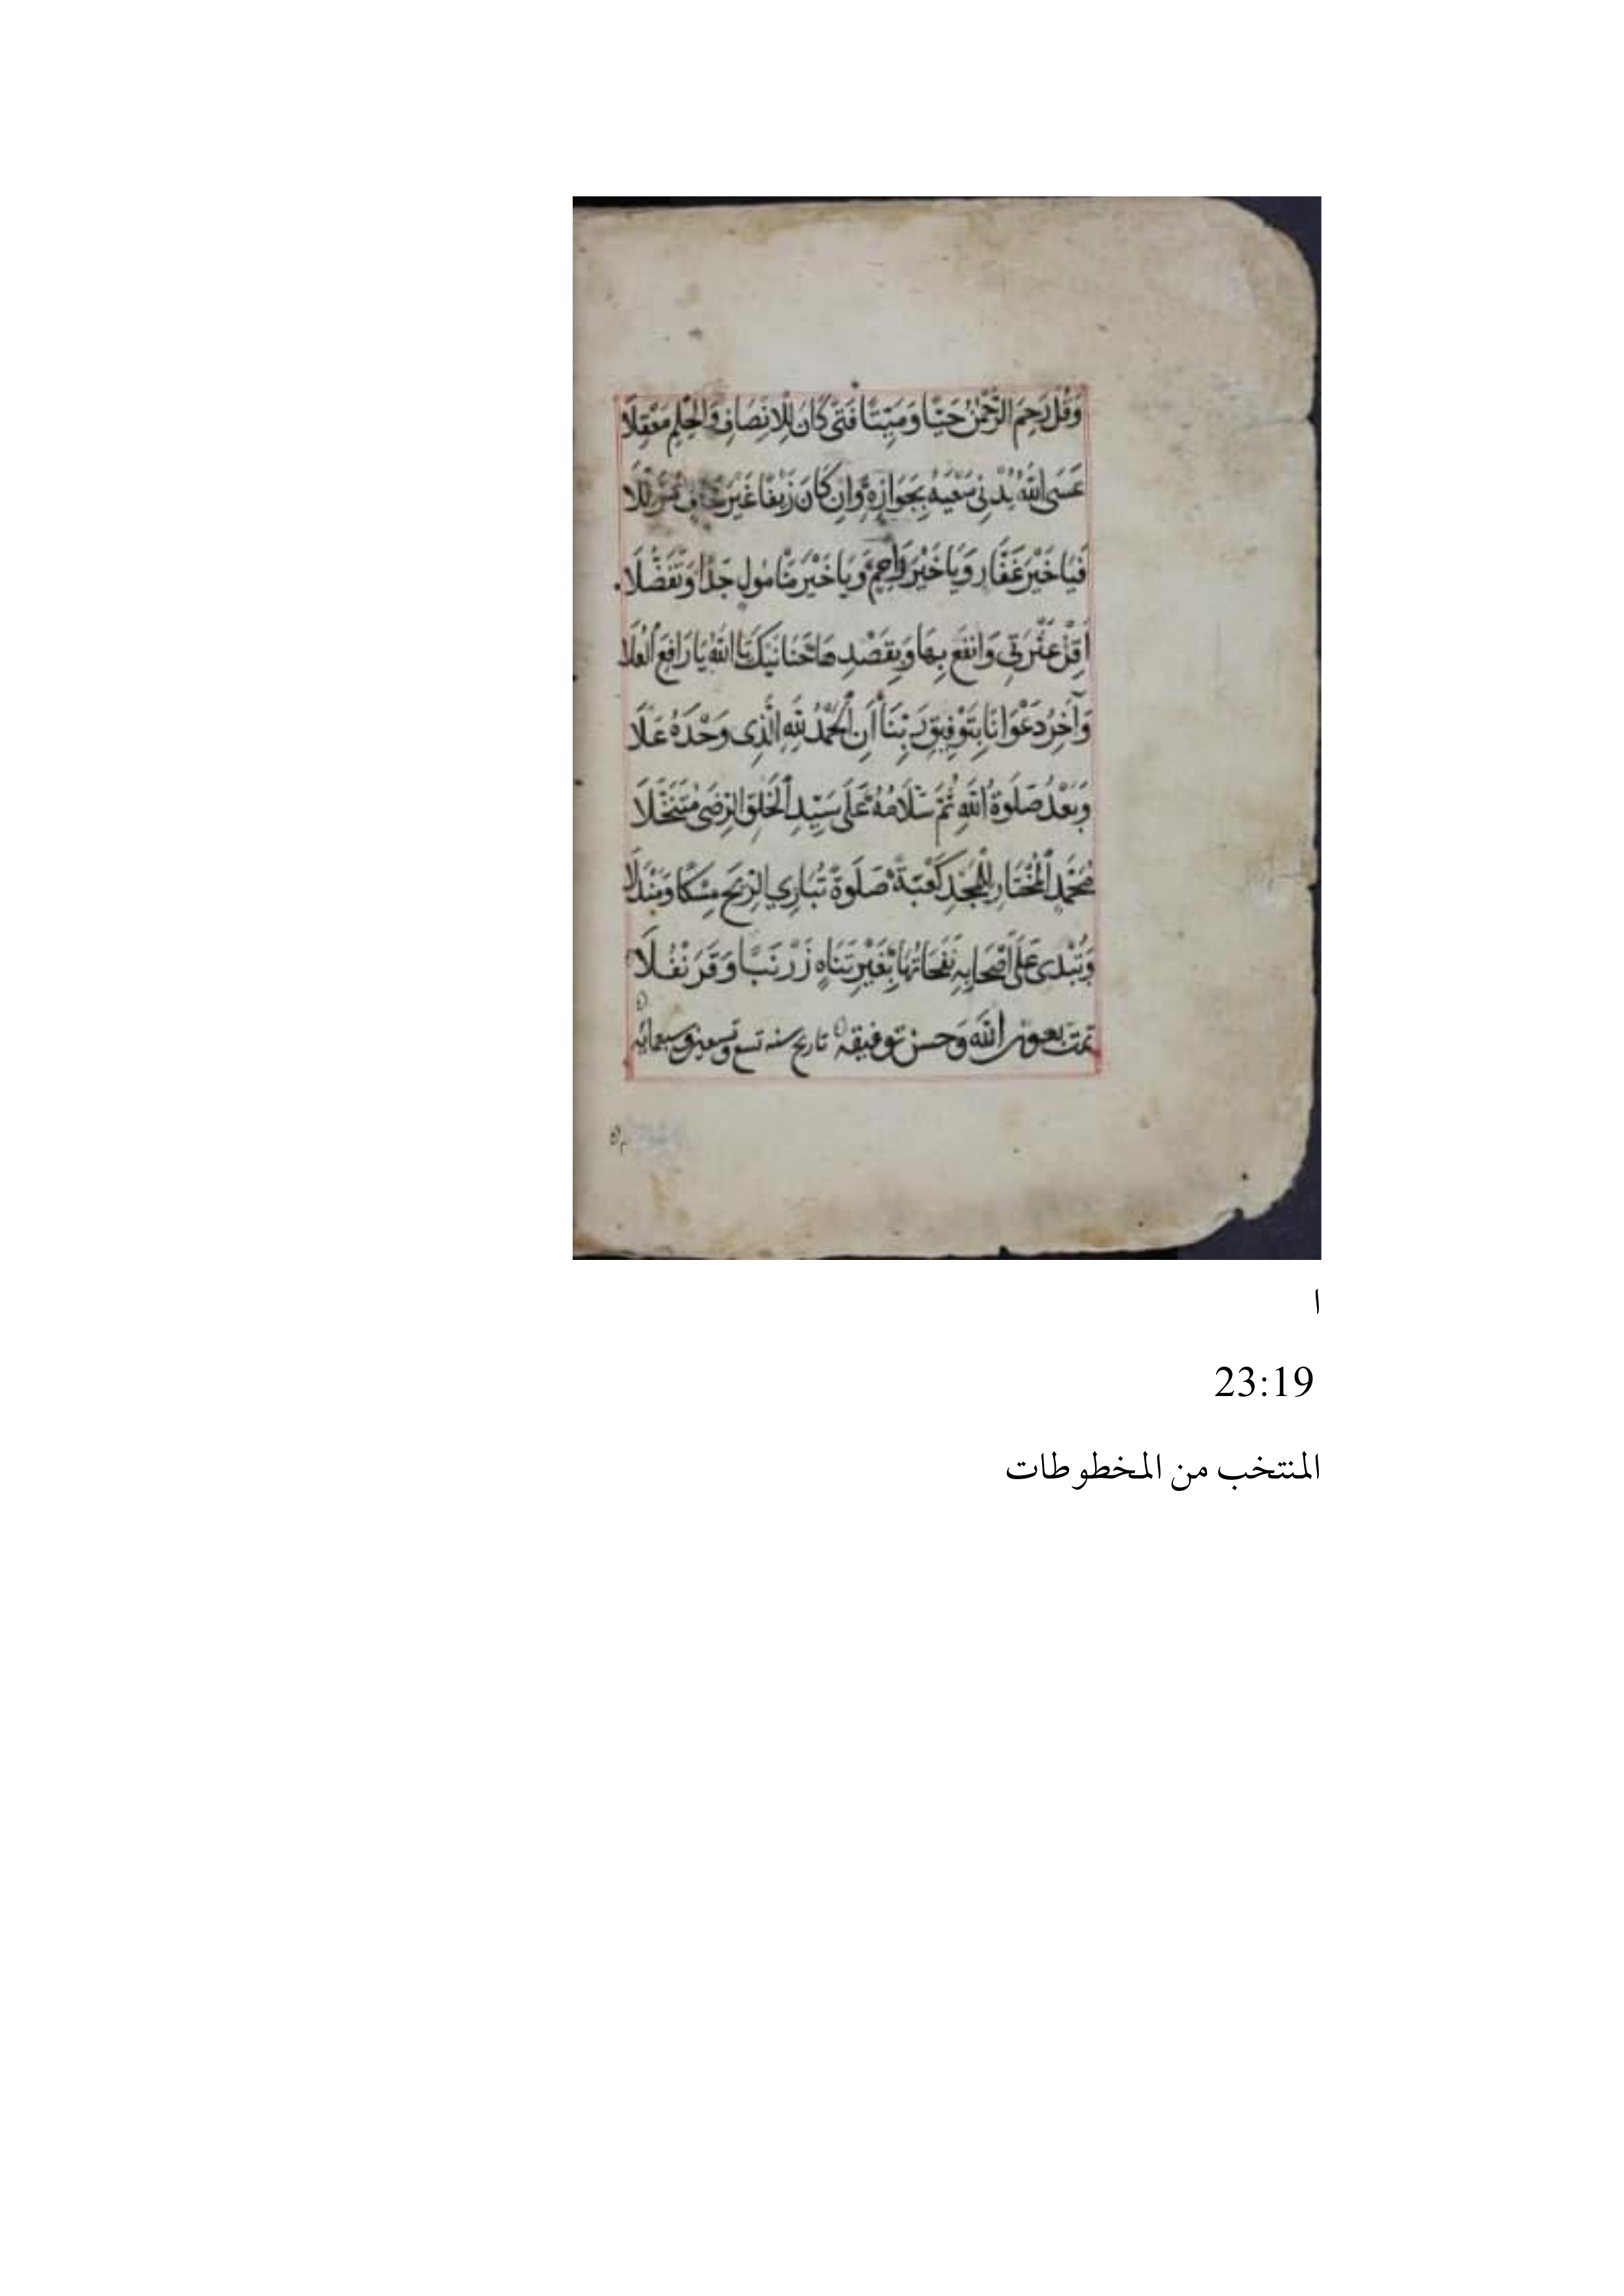 وَقُلْ رَحِمَ الرَّحْمٰنُ حَيًّا وَمَيِّتًا فَتًى كَانَ لِلْاِنْصَافِ وَالْحِلْمِ مَعْقِلَا
عَسَى اللهُ يُدْنِي سَعْيَهُ بِجَوَازِهِ وَاِنْ كَانَ زَيْفًا غَيْرَ خَافٍ مُزَلَّلَا
فَيَا خَيْرَ غَفَّارٍ وَيَا خَيْرَ رَاحِمٍ وَيَا خَيْرَ مَأْمُولٍ جَدًا وَتَفَضُّلَا
اَقِلْ عَثْرَتِي وَانْفَعْ بِهَا وَبِقَصْدِهَا حَنَانَيْكَ يَا اَللهُ يَا رَافِعَ الْعُلَا
وَآخِرُ دَعْوَانَا بِتَوْفِيقِ رَبِّنَا اَنِ الْحَمْدُ لِلّٰهِ الَّذِى وَحْدَهُ عَلَا
وَبَعْدُ صَلَوةُ اللهِ ثُمَّ سَلَامُهُ عَلَى سَيِّدِ الْخَلْقِ الرِّضَى مُتَنَخَّلَا
مُحَمَّدٍ الْمُخْتَارِ لِلْمَجْدِ كَعْبَةً صَلَوةً تُبَارِي الرِّيحَ مِسْكًا وَمَنْدَلَا
وَتُبْدِى عَلَى اَصْحَابِهِ نَفَحَاتُهَا بِغَيْرِ تَنَاهٍ زَرْنَبًا وَقَرَنْفُلَا
تمت بعون الله وَحسن توفيقه تاريخ سنه تسع وتسعين وسبعمائه
ا
23:19
المنتخب من المخطوطات